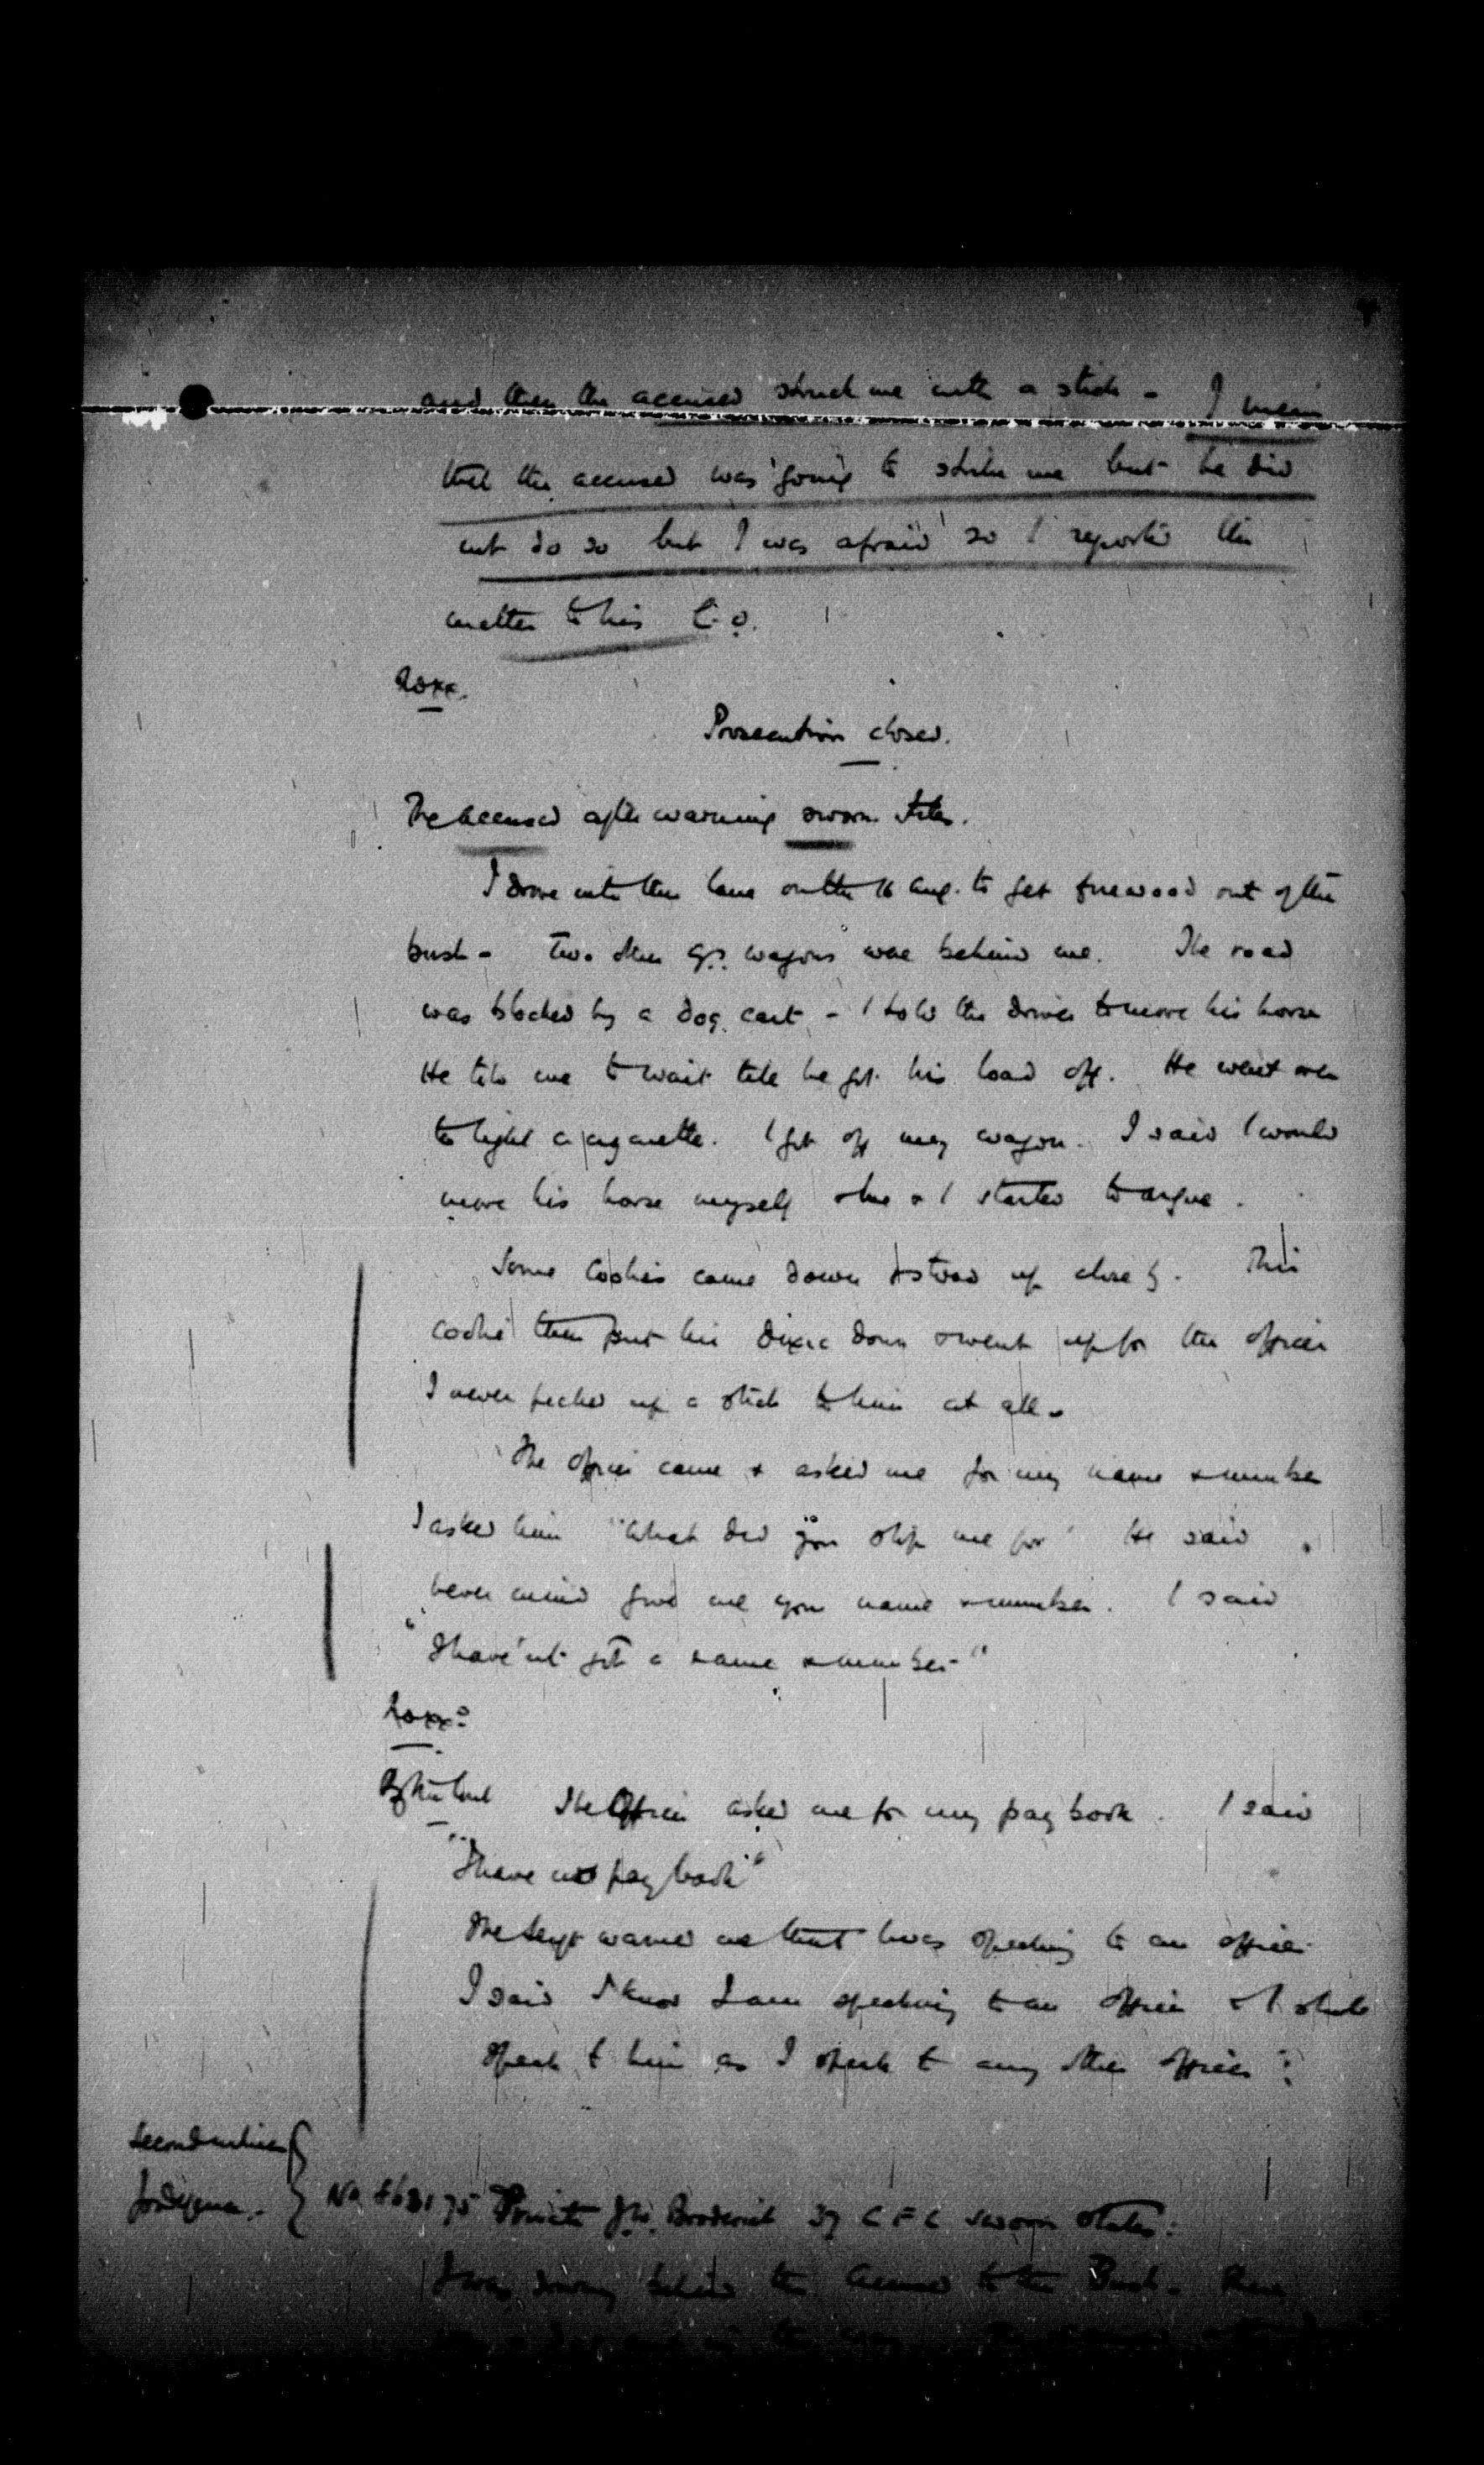 and then the accused struck me with a stick - I mean
that the accused was going to strike me but he did
not do so but I was afraid so I reported the
matter to his C.O.
Noxx.
Prosecution closed.
The accused after warning sworn states.
I drove into the lane on the 16 Aug. to get firewood out of the
bush - two other G.S. wagons were behind me. The road
was blocked by a dog cart - I told the driver to move his horse
He told me to wait till he got his load off. He went over
to light a cigarette. I got off my wagon. I said I would
move his horse myself & he & I started to argue.
Some Coolies came down & stood up close by. This
coolie then put his dixie down & went up for the officer
I never picked up a stick to him at all -
The officer came & asked me for my name & number
I asked him "What did you stop me for" He said
never mind give me your name & number. I said
"I have'nt got a name & number"
Noxx:
By the Court The Officer asked me for my pay book. I said
"I have no pay book"
The Sergt warned me that I was speaking to an officer
I said I know I am speaking to an officer & I
speak to him as I speak to any other officer":
Second witness
for defence.
No 863175 Private J.W. Broderick 37 C F C sworn states:
I was driving behind the accused to the Bush - There